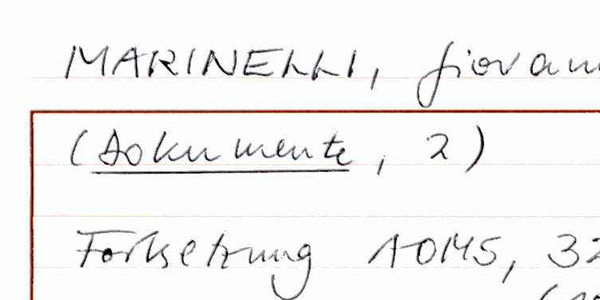 MARINELLI, Giovan
(Dokumente, 2)
Fortsetzung AOMS, 32